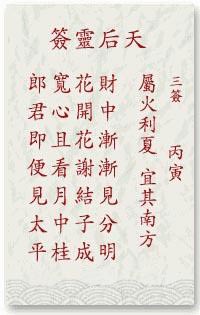 天后靈簽
三簽 丙寅
屬火利夏 宜其南方
財中漸漸見分明
花開花謝結子成
寬心且看月中桂
郎君即便見太平